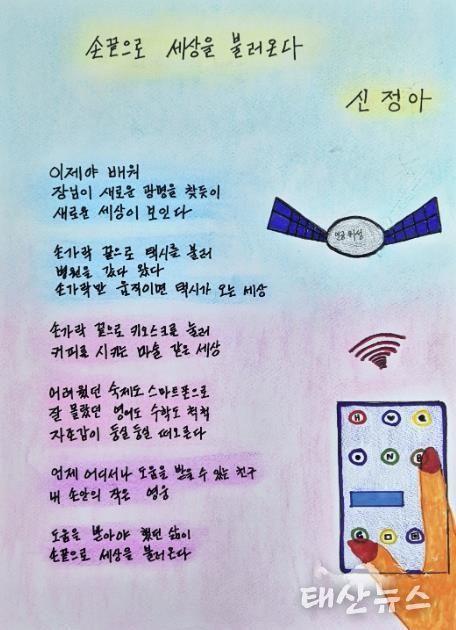 손끝으로 세상을 불러온다
신정아
이제야 배워
장님이 새로운 광명을 찾듯이
새로운 세상이 보인다
손가락 끝으로 택시를 불러
병원을 갔다 왔다
손가락만 움직이면 택시가 오는 세상
손가락 끝으로 키오스크를 눌러
커피를 시키는 마술 같은 세상
어려웠던 숙제도 스마트폰으로
잘 몰랐던 영어도 수학도 척척
자존감이 둥실둥실 떠오른다
언제 어디서나 도움을 받을 수 있는 친구
내 손안의 작은 영웅
도움을 받아야 했던 삶이
손끝으로 세상을 불러온다
인공위성
태산뉴스